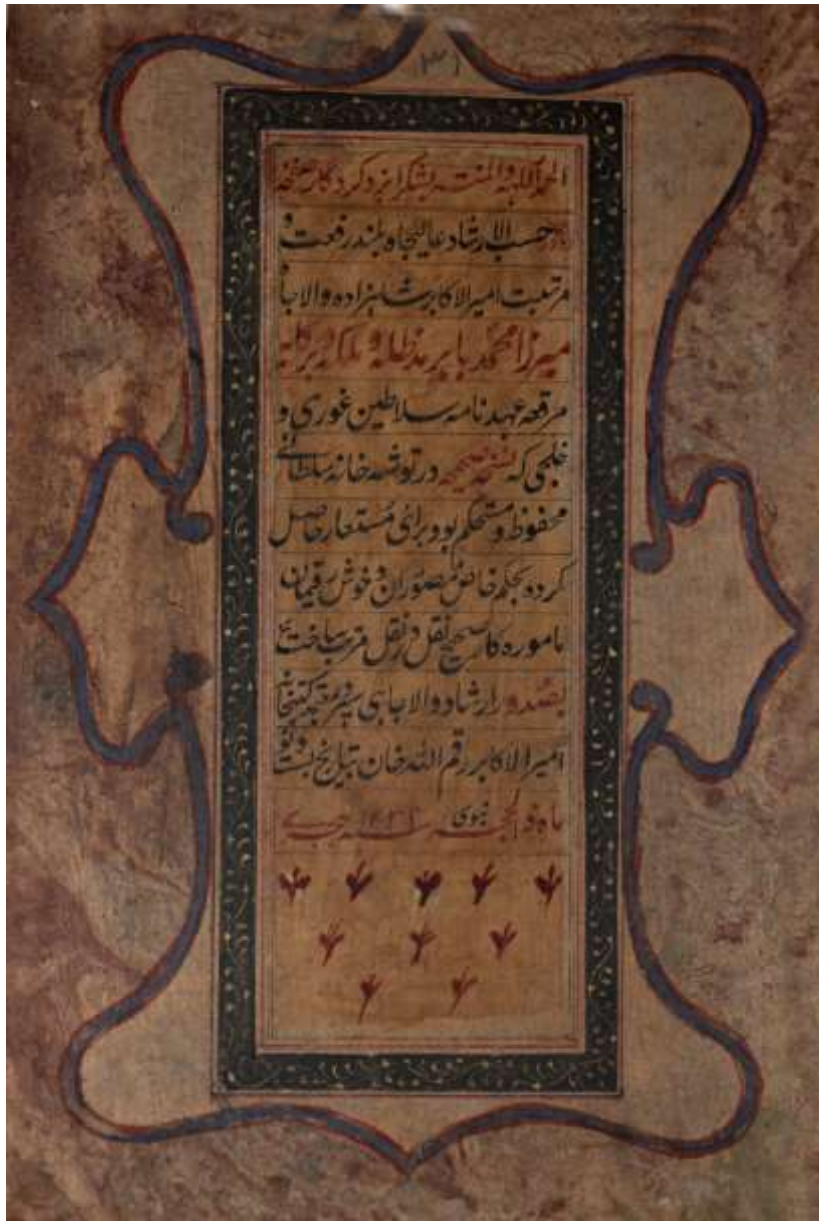 الحمد للله والمنته بشکر ایزد کردکار صفحه
حسب الارشاد عالیجاه بلند رفعت و
مرتبت امیر الاکابر شاهزاده والا جاه
میرزا محمد بابر مد ظله و ملکه و برکاته
مرقعه عهدنامه سلاطین غوری و
خلجی که نسخه صحیحه در توشه خانه سلطانی
محفوظ و مستحکم بود برای مستعار حاصل
کرده بحکم خاص مصوران و خوش رقیمان
ماموره کار صحیح نقل در نقل مرتب ساخت
بصدور ارشاد والا جاهی کتبخانه
امیر الاکابر رقم الله خان بتاریخ بست و نو
ماه ذوالحجه نبوی سنه